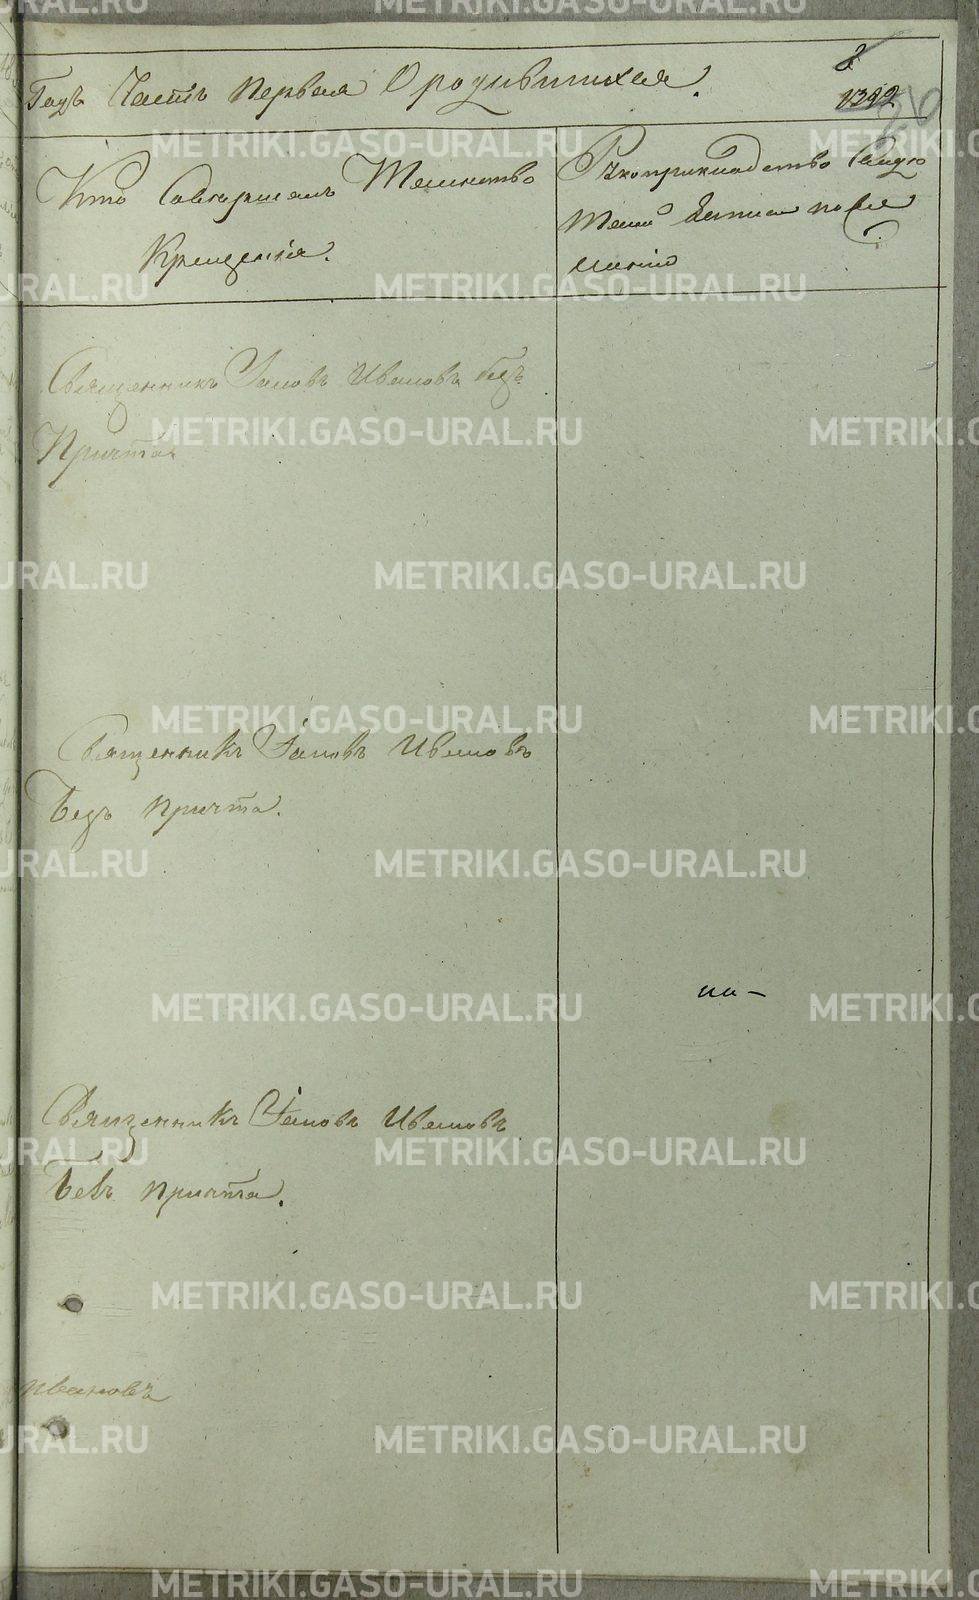 Годъ Часть Первая О родившихся. 2
1392 26
Кто Совершалъ Таинство
Крещенія.
Рукоприкладство Свидѣ
телей Записи по же
ланію
Священникъ Іаковъ Ивановъ безъ
Причта
Священникъ Іаковъ Ивановъ
Безъ причта.
Священникъ Іаковъ Ивановъ
Безъ причта.
Ивановъ
METRIKI.GASO-URAL.RU